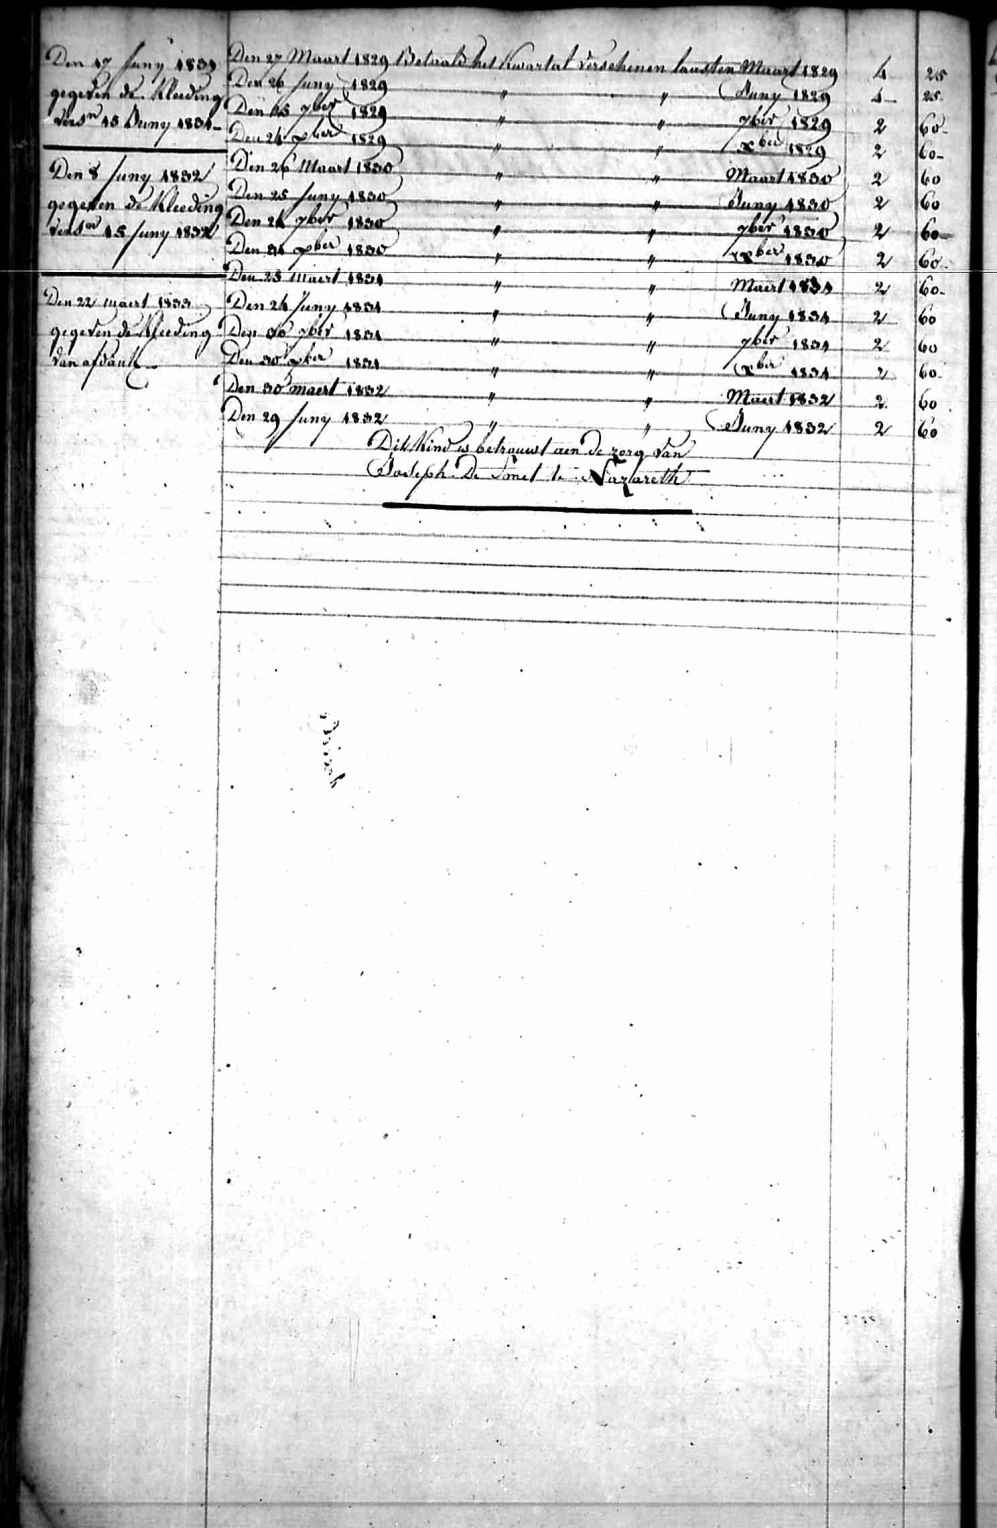 Den 17 Juny 1831
gegeven de Kleeding
versn 15 Juny 1831
Den 8 Juny 1832
gegeven de Kleeding
versn 15 Juny 1832
Den 22 maert 1833
gegeven de Kleeding
van afdank
Den 27 Maart 1829 Betaald het Kwartal verschenen laasten Maart 1829 4 25
Den 26 Juny 1829 " " Juny 1829 4 25
Den 15 7ber 1829 " " 7ber 1829 2 60
Den 24 Xber 1829 " " Xber 1829 2 60
Den 26 Maart 1830 " " Maart 1830 2 60
Den 25 Juny 1830 " " Juny 1830 2 60
Den 24 7ber 1830 " " 7ber 1830 2 60
Den 31 Xber 1830 " " Xber 1830 2 60
Den 25 Maert 1831 " " Maert 1831 2 60
Den 24 Juny 1831 " " Juny 1831 2 60
Den 30 7ber 1831 " " 7ber 1831 2 60
Den 30 Xber 1831 " " Xber 1831 2 60
Den 30 maert 1832 " " Maert 1832 2 60
Den 29 Juny 1832 " " Juny 1832 2 60
Dit Kind is betrouwt aen de zorg van
Joseph De Smet te Nazareth